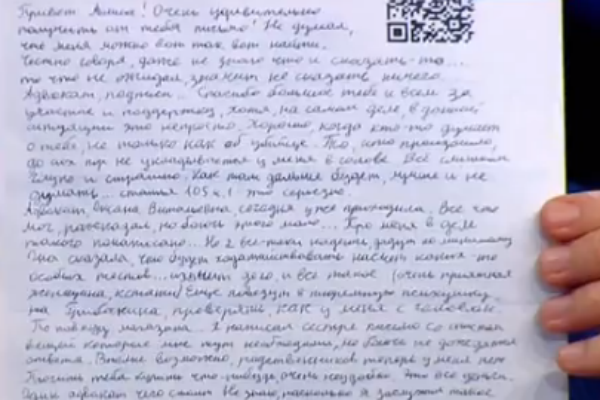 Привет Алиса! Очень удивительно
получить от тебя письмо! Не думал,
что меня можно вот так вот найти.
Честно говоря, даже не знаю что и сказать-то...
то что не ожидал, значит не сказать ничего.
Адвокат, подписи... Спасибо большое тебе и всем за
участие и поддержку, хотя, на самом деле, в данной
ситуации это непросто. Хорошо, когда кто-то думает
о тебе, не только как об убийце. То, что произошло,
до сих пор не укладывается у меня в голове. Всё слишком
глупо и страшно. Как там дальше будет, лучше и не
думать... статья 105 ч.1 это серьёзно.
Адвокат, Оксана Витальевна, сегодня уже приходила. Всё что
мог, рассказал, но боюсь этого мало... Про меня в деле
такого понаписано... Но я все-таки надеюсь, дадут по минимуму
Она сказала, что будут ходатайствовать насчёт каких-то
особых тестов... и всё такое (очень приятная
женщина, кстати) Ещё повезут в тюремную психушку,
на Грибакина, проверять как у меня с головой.
По поводу магазина... Я написал сестре письмо со списком
вещей которые мне тут необходимы, но боюсь не дождаться
ответа. Вполне возможно, родственников теперь у меня нет
Просить тебя купить что-нибудь, очень неудобно. Это все деньги.
Один адвокат чего стоит Не знаю, насколько я заслужил такое